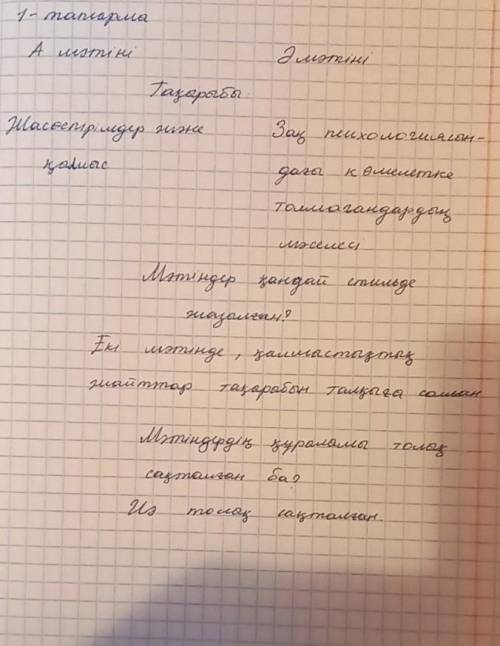 1-тапсырма
А мәтіні Ә мәтіні
Тақырыбы
Жасөспірімдер және Заң психологиясын-
қылмыс дағы кәмелетке
толмағандардың
мәселесі
Мәтіндер қандай стильде
жазылған?
Екі мәтінде, қылмыстықтық
жайттар тақырабын талқыға салған
Мәтіндердің құрылымы толық
сақталған ба?
Иә толық сақталған.